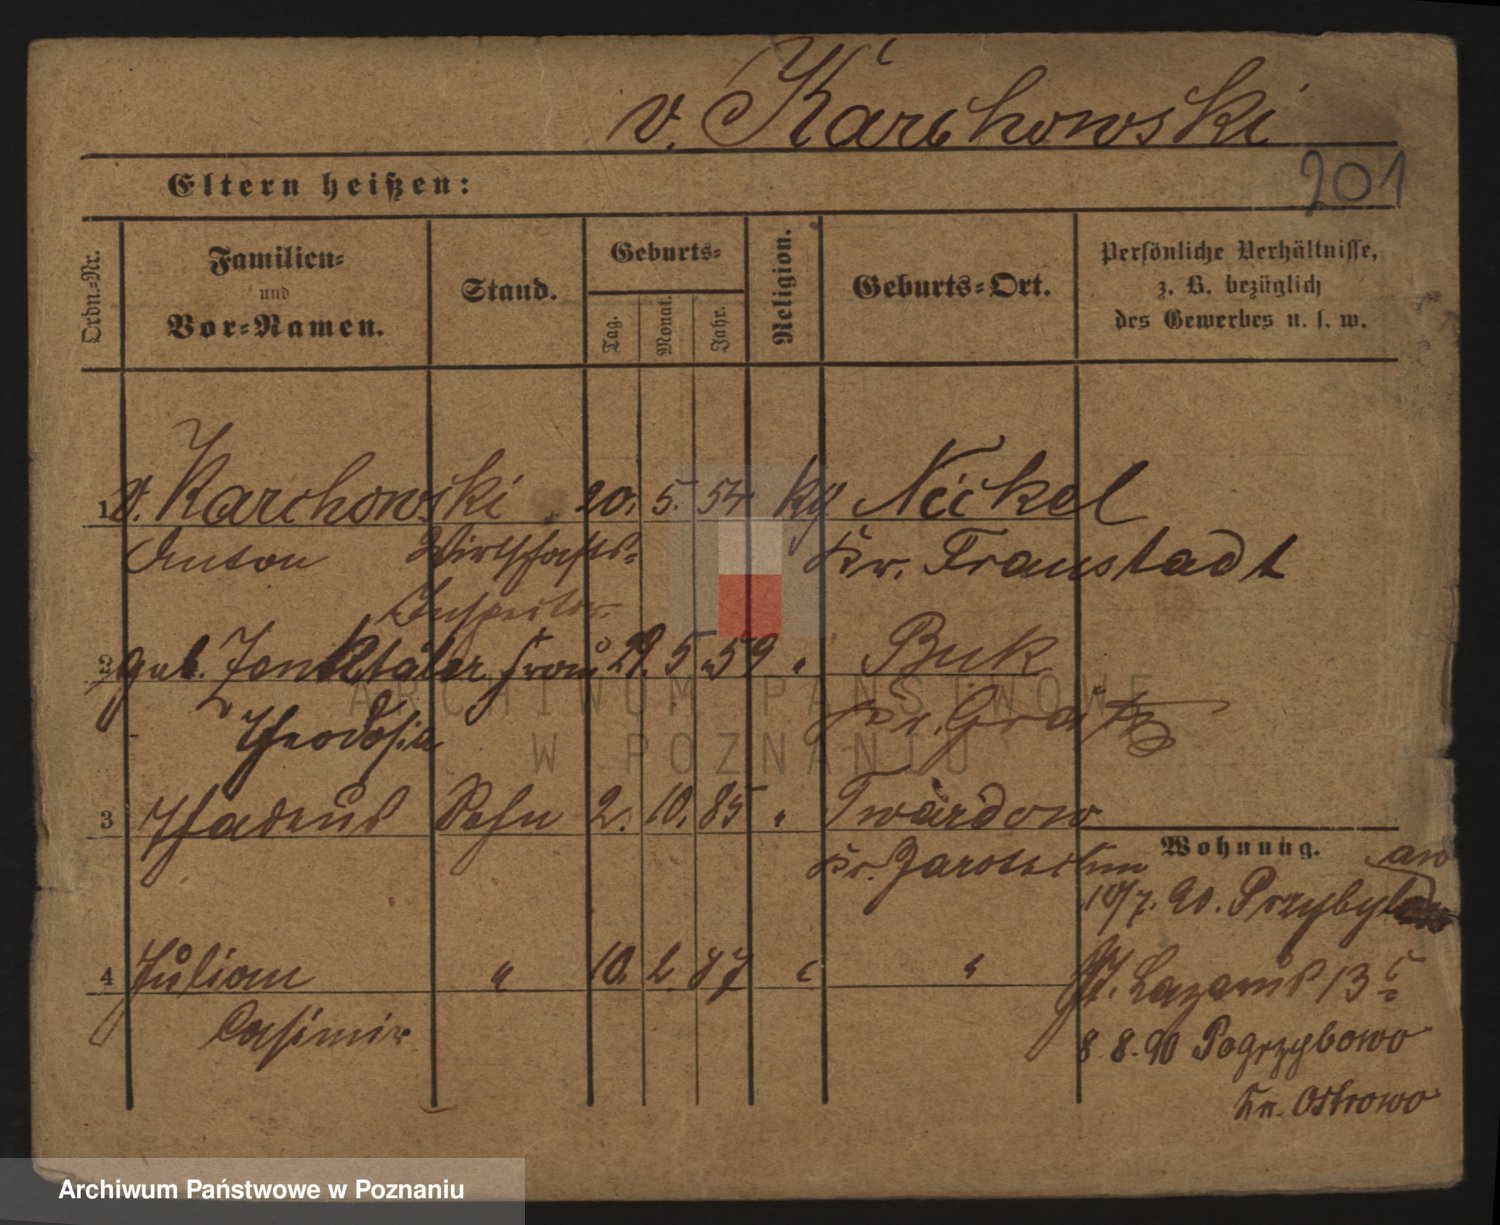 v. Karchowski
201
Eltern heißen:
Ordn.-Nr.
Familien-
und
Vor-Namen.
Stand.
Geburts-
Tag.
Monat.
Jahr.
Religion.
Geburts-Ort.
Persönliche Verhältnisse,
z. B. bezüglich
des Gewerbes u. s. w.
1 v. Karchowski 20. 5. 54 Nickel
Anton Wirthschafts- Kr. Fraustadt
Inspector
2 geb. Frau 29. 5. 59 " Buk
Theodosia Kr. Grätz
3 Thadeus Sohn 2. 10. 85 " Twardow
Kr. Jarotschin
Wohnung.
10/7. 90. Przybyl
4 Julian " 10. 2. 87 " "
St. Lazarus 13
Casimir
8. 8. 90 Pogrzybowo
Kr. Ostrowo
ARCHIWUM PAŃSTWOWE
W POZNANIU
Archiwum Państwowe w Poznaniu